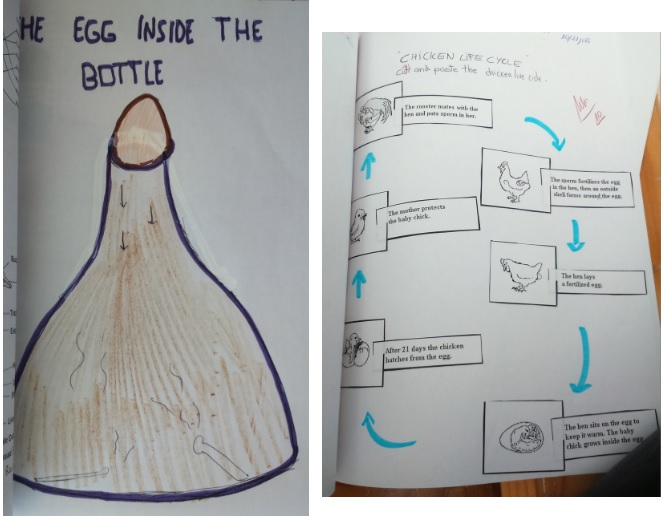 HE EGG INSIDE THE
BOTTLE
"CHICKEN LIFE CYCLE"
Cut and paste the chicken life
The rooster mates with the
hen and puts sperm in her.
The sperm fertilizes the egg
in the hen, then an outside
shell forms around the egg.
The mother protects
the baby chick.
The hen lays
a fertilized egg.
After 21 days the chicken
hatches from the egg.
The hen sits on the egg to
keep it warm. The baby
chick grows inside the egg